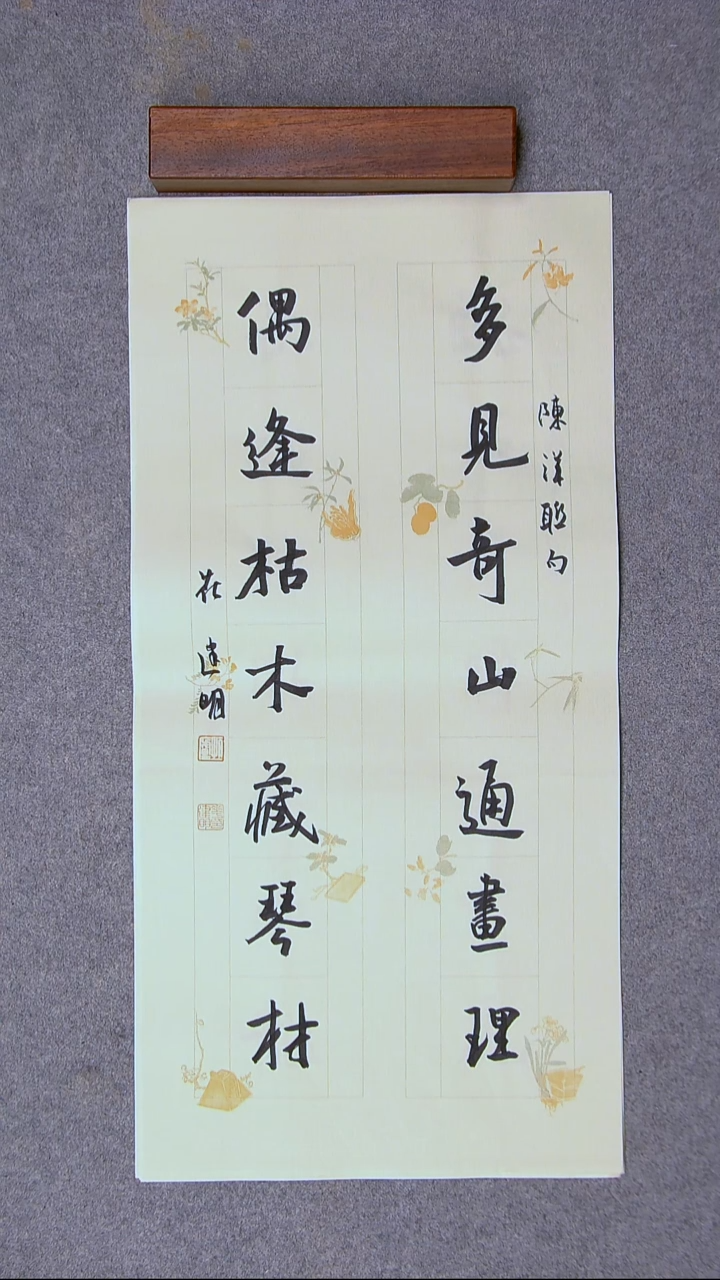 陳洋聯句
多見奇山通畫理
偶逢枯木藏琴材
莊建明